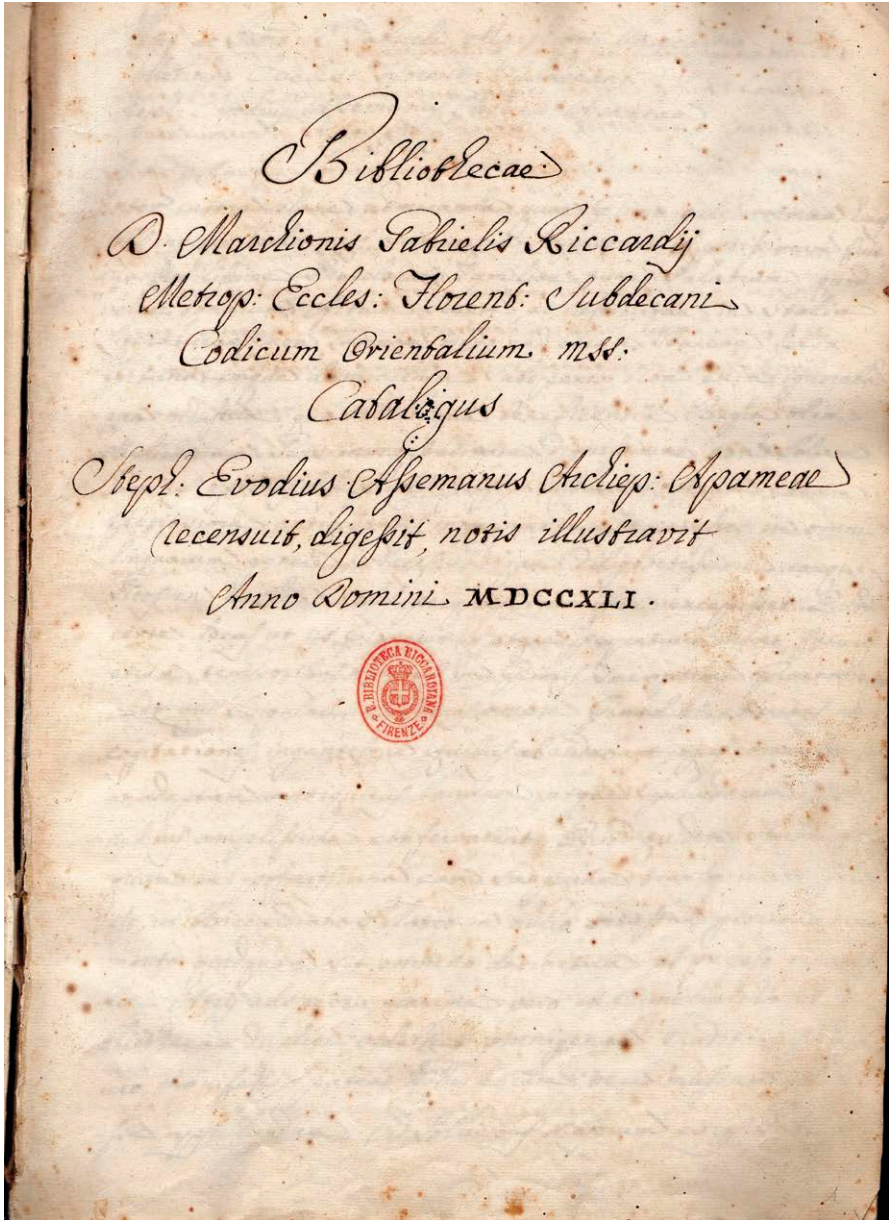 Bibliothecae
D. Marchionis Gabrielis Riccardij
Metrop: Eccles: Florent: Subdecani
Codicum Orientalium mss:
Catalogus
Steph: Evodius Assemanus Archiep: Apameae
recensuit, digessit, notis illustravit
Anno Domini MDCCXLI.
R. BIBLIOTECA RICCARDIANA
FIRENZE